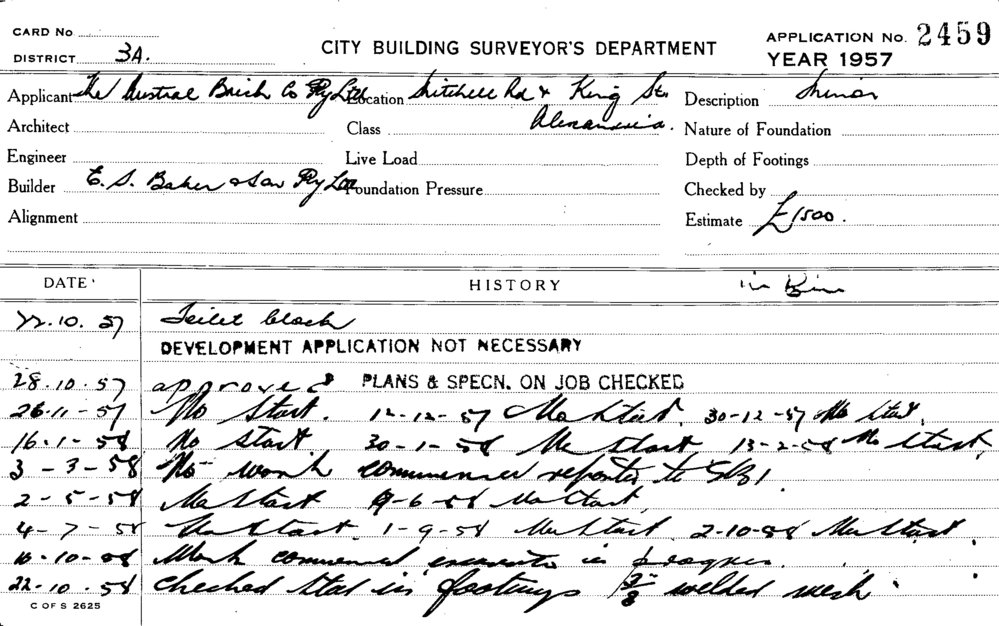 CARD No
DISTRICT 3A.
CITY BUILDING SURVEYOR'S DEPARTMENT
APPLICATION No. 2459
YEAR 1957
Applicant The Austral Brick Co Pty Ltd
Location Mitchell Rd & King St.
Alexandria.
Description Minor
Architect
Class
Nature of Foundation
Engineer
Live Load
Depth of Footings
Builder E. S. Baker & Son Pty Ltd
Foundation Pressure
Checked by
Alignment
Estimate £1500.
DATE
HISTORY
22.10.57 Toilet block
DEVELOPMENT APPLICATION NOT NECESSARY
28.10.57 approved PLANS & SPECN. ON JOB CHECKED
26-11-57 No Start. 12-12-57 No Start. 30-12-57 No Start.
16-1-58 No Start 30-1-58 No Start 13-2-58 No Start.
3-3-58 No work commenced reported to
2-5-58 No Start 9-6-58 No Start.
4-7-58 No Start. 1-9-58 No Start 2-10-58 No Start.
10-58 Work commenced in progress.
22-10-58 Checked Steel in footings welded mesh
C OF S 2625